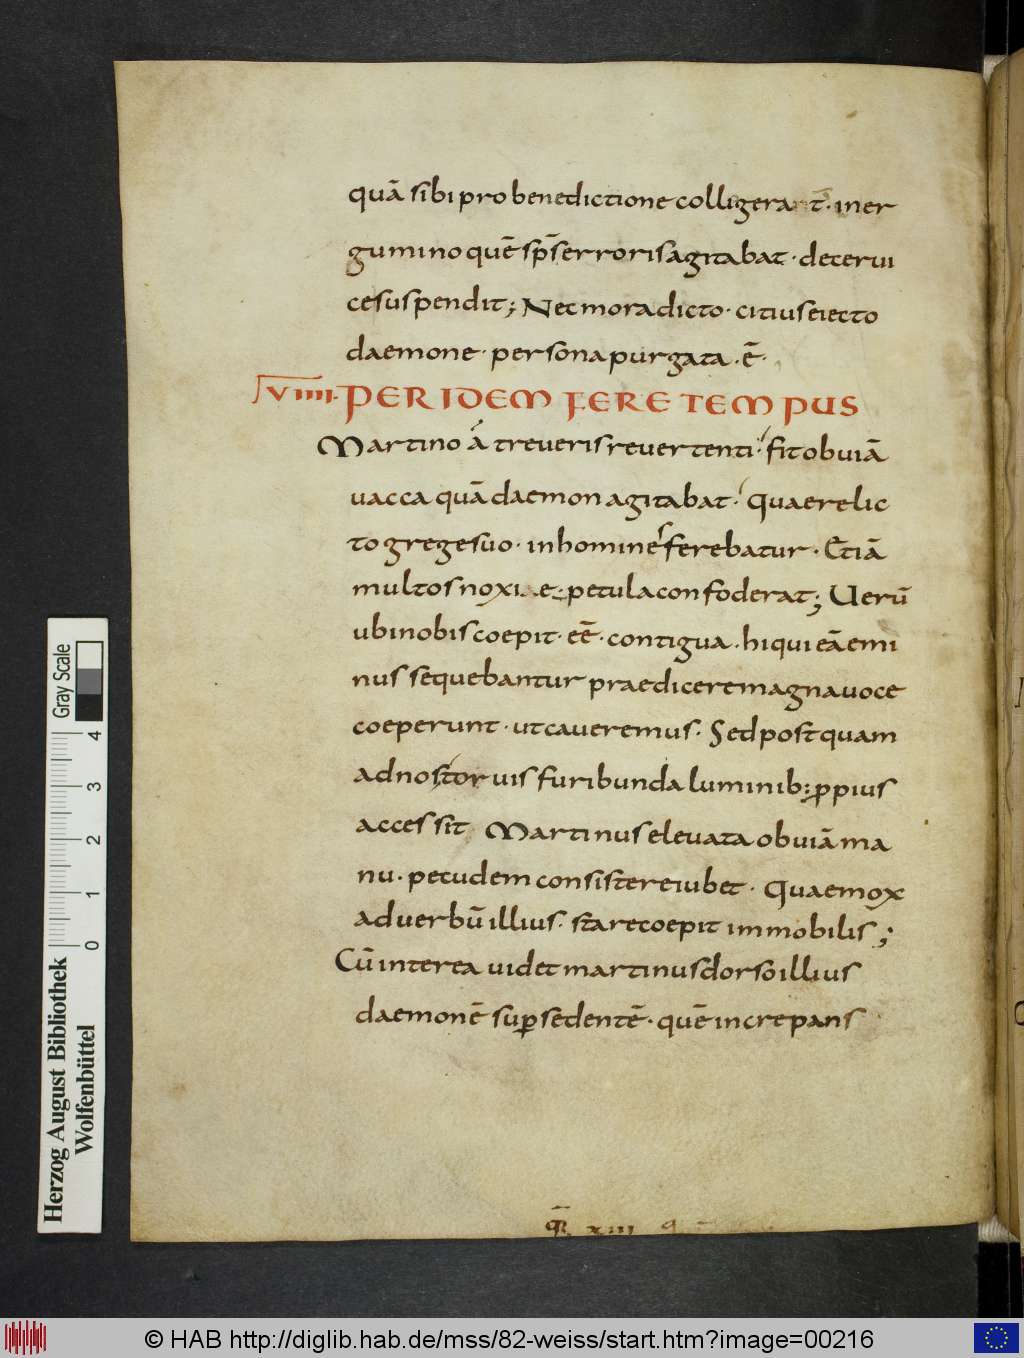 quā sibi pro benedictione colligerant· iner
gumino quē sp̄s erroris agitabat· de cerui
ce suspendit; Nec mora dicto· citius eiecto
daemone· persona purgata· ē·
VIIII· PER IDEM FERE TEMPUS
Martino a treveris revertenti· fit obviā
vacca quā daemon agitabat· Quae relic
to grege suo· in hominēs ferebatur· Etiā
multos noxiae petula confoderat; Uerū
ubi nobis coepit· eē· contigua· hi qui eā emi
nus sequebantur praedicere magna uoce
coeperunt· ut caveremus· Sed postquam
ad nos toruis furibunda luminib: ꝓpius
accessit Martinus elevata obviā ma
nu· pecudem consistere iubet· Quae mox
ad uerbū illius· stare coepit immobilis;
Cū interea uidet martinus dorso illius
daemonē suꝑsedentē· quē increpans
XIII
Herzog August Bibliothek
Wolfenbüttel
0 1 2 3 4
Gray Scale
© HAB http://diglib.hab.de/mss/82-weiss/start.htm?image=00216